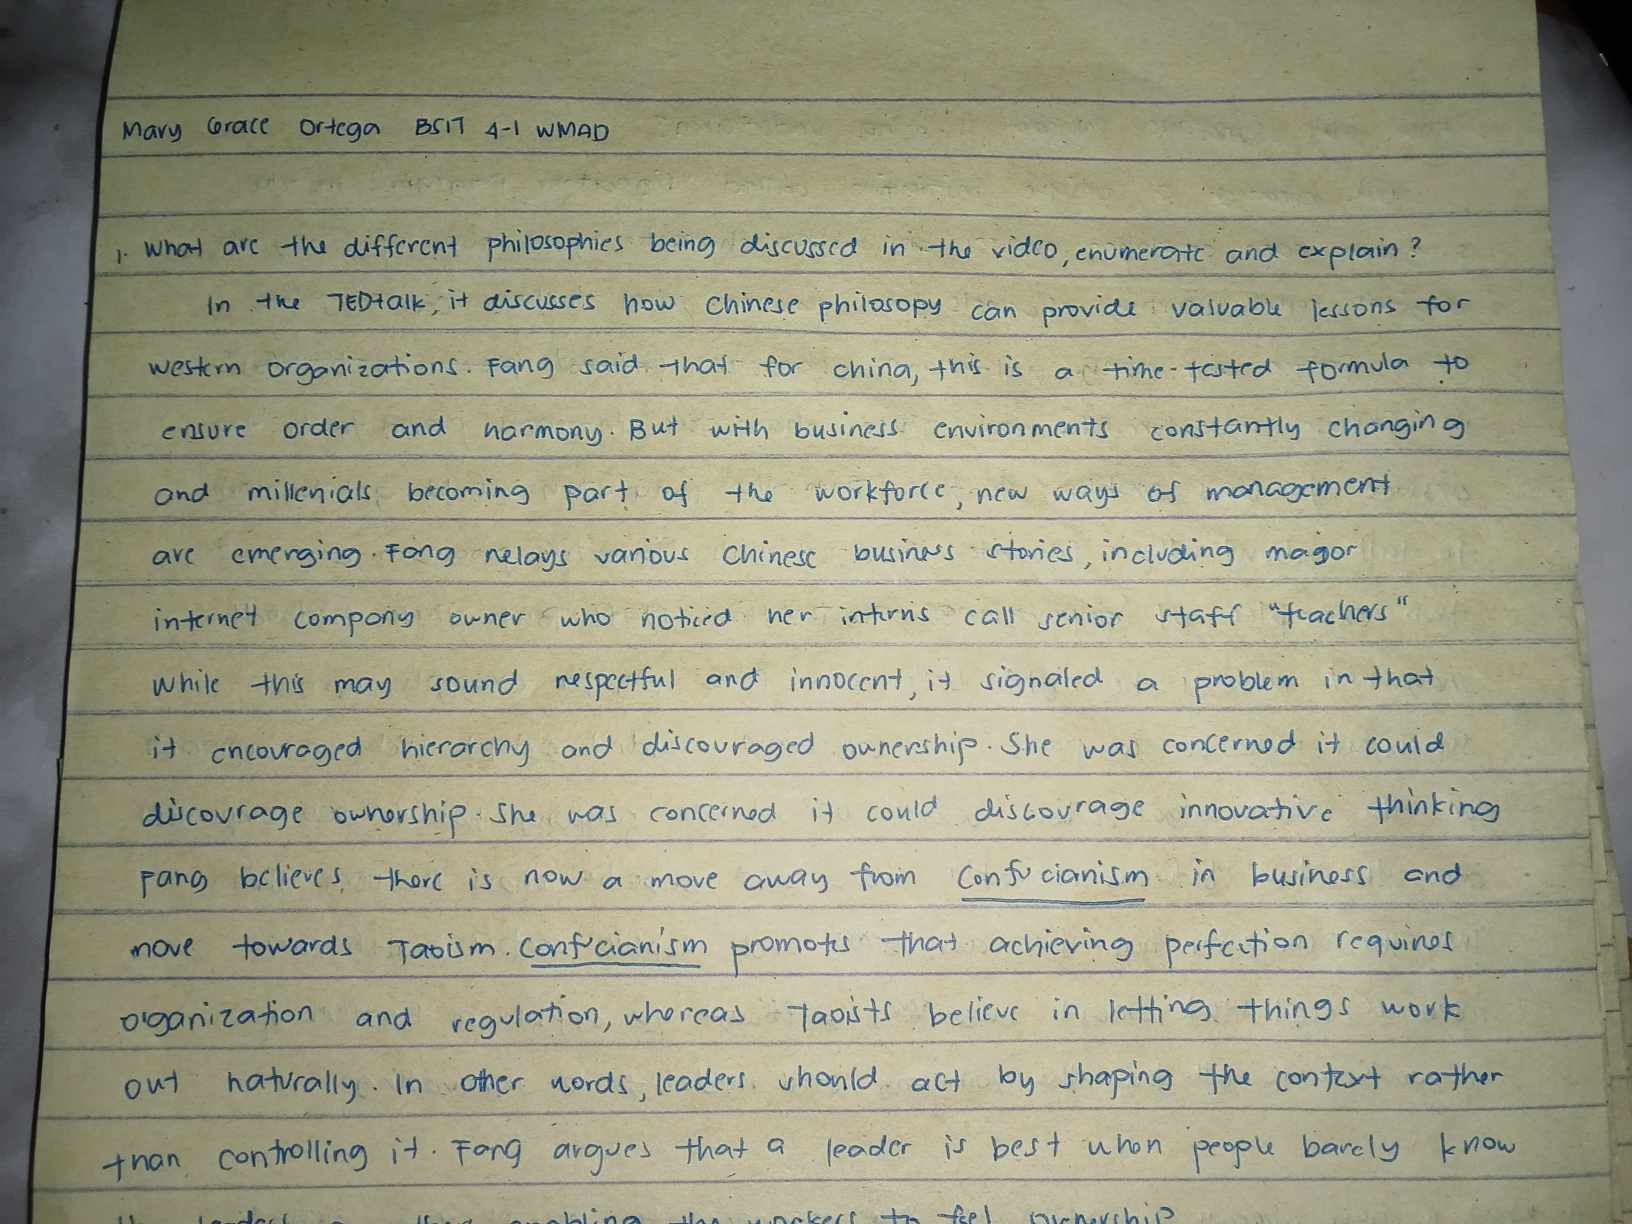 Mary Grace Ortega BSIT 4-1 WMAD
1. What are the different philosophies being discussed in the video, enumerate and explain?
In the TEDtalk, it discusses how Chinese philosopy can provide valuable lessons for
western organizations. Fang said that for china, this is a time-tested formula to
ensure order and harmony. But with business environments constantly changing
and millenials becoming part of the workforce, new ways of management
are emerging. Fang relays various Chinese business stories, including magor
internet company owner who noticed her interns call senior staff "teachers"
while this may sound respectful and innocent, it signaled a problem in that
it encouraged hierarchy and discouraged ownership. She was concerned it could
discourage ownership. She was concerned it could discourage innovative thinking
Fang believes there is now a move away from Confucianism in business and
move towards Taoism. Confucianism promotes that achieving perfection requires
organization and regulation, whereas Taoists believe in letting things work
out naturally. In other words, leaders should act by shaping the context rather
than controlling it. Fang argues that a leader is best when people barely know
enabling the workers to feel ownership